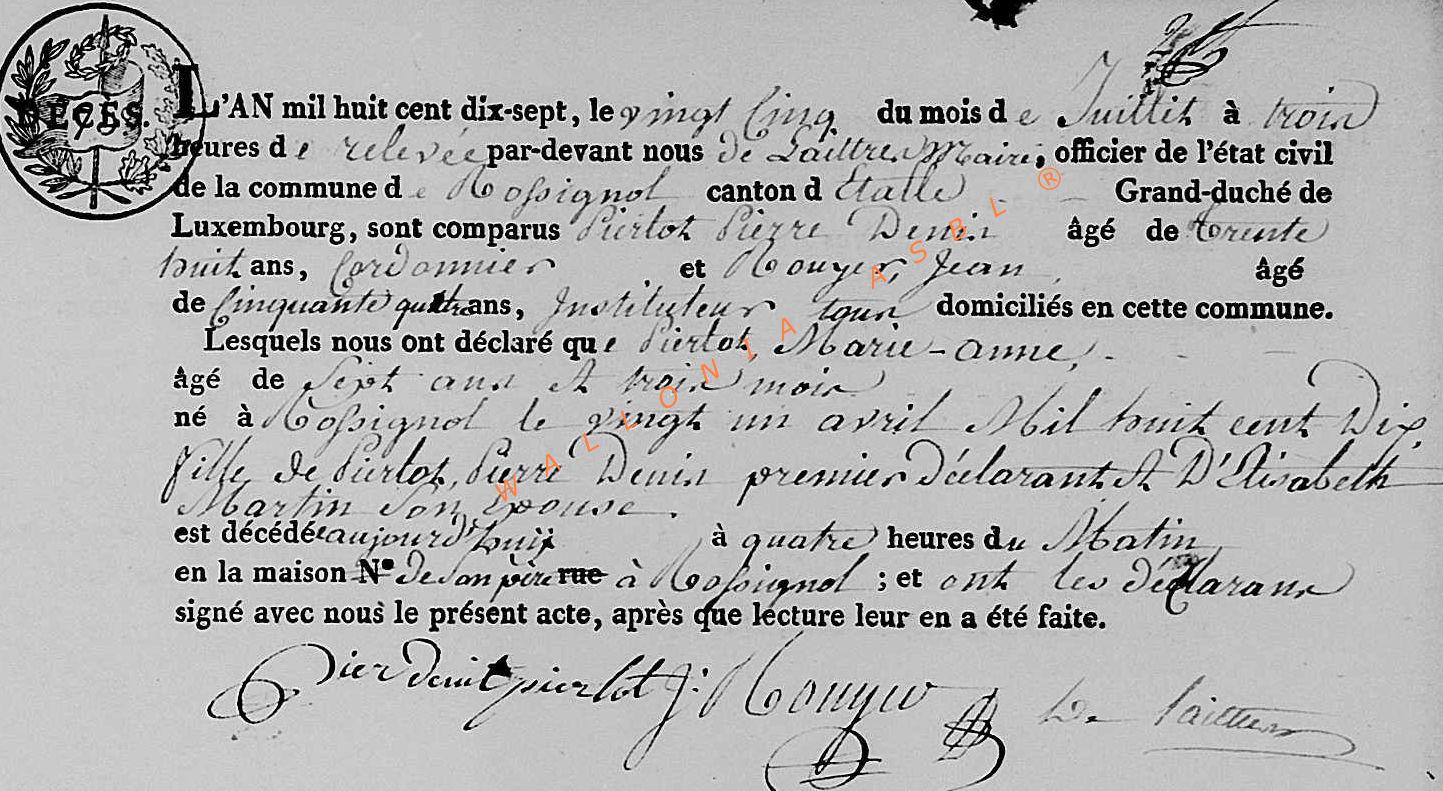 DÉCÈS.
L'AN mil huit cent dix-sept, le vingt Cinq du mois de Juillet à trois
heures de relevée par-devant nous de Laittres Maire, officier de l'état civil
de la commune de Rossignol canton d Etalle Grand-duché de
Luxembourg, sont comparus Pierlot Pierre Denis âgé de trente
huit ans, Cordonnier et Rouyer, Jean, âgé
de Cinquante quatre ans, Instituteur tous domiciliés en cette commune.
Lesquels nous ont déclaré que Pierlot, Marie-anne,
âgé de Sept ans et trois mois
né à Rossignol le vingt un avril Mil huit cent Dix,
fille de Pierlot, Pierre Denis premier déclarant et D'Elisabeth
Martin Son, epouse.
est décédée aujourd'huis à quatre heures du Matin
en la maison N.° de son père rue à Rossignol ; et ont les déclarans
signé avec nous le présent acte, après que lecture leur en a été faite.
pier denit pierlot J: Rouyer De Laittres
WALLONIA ASBL ®